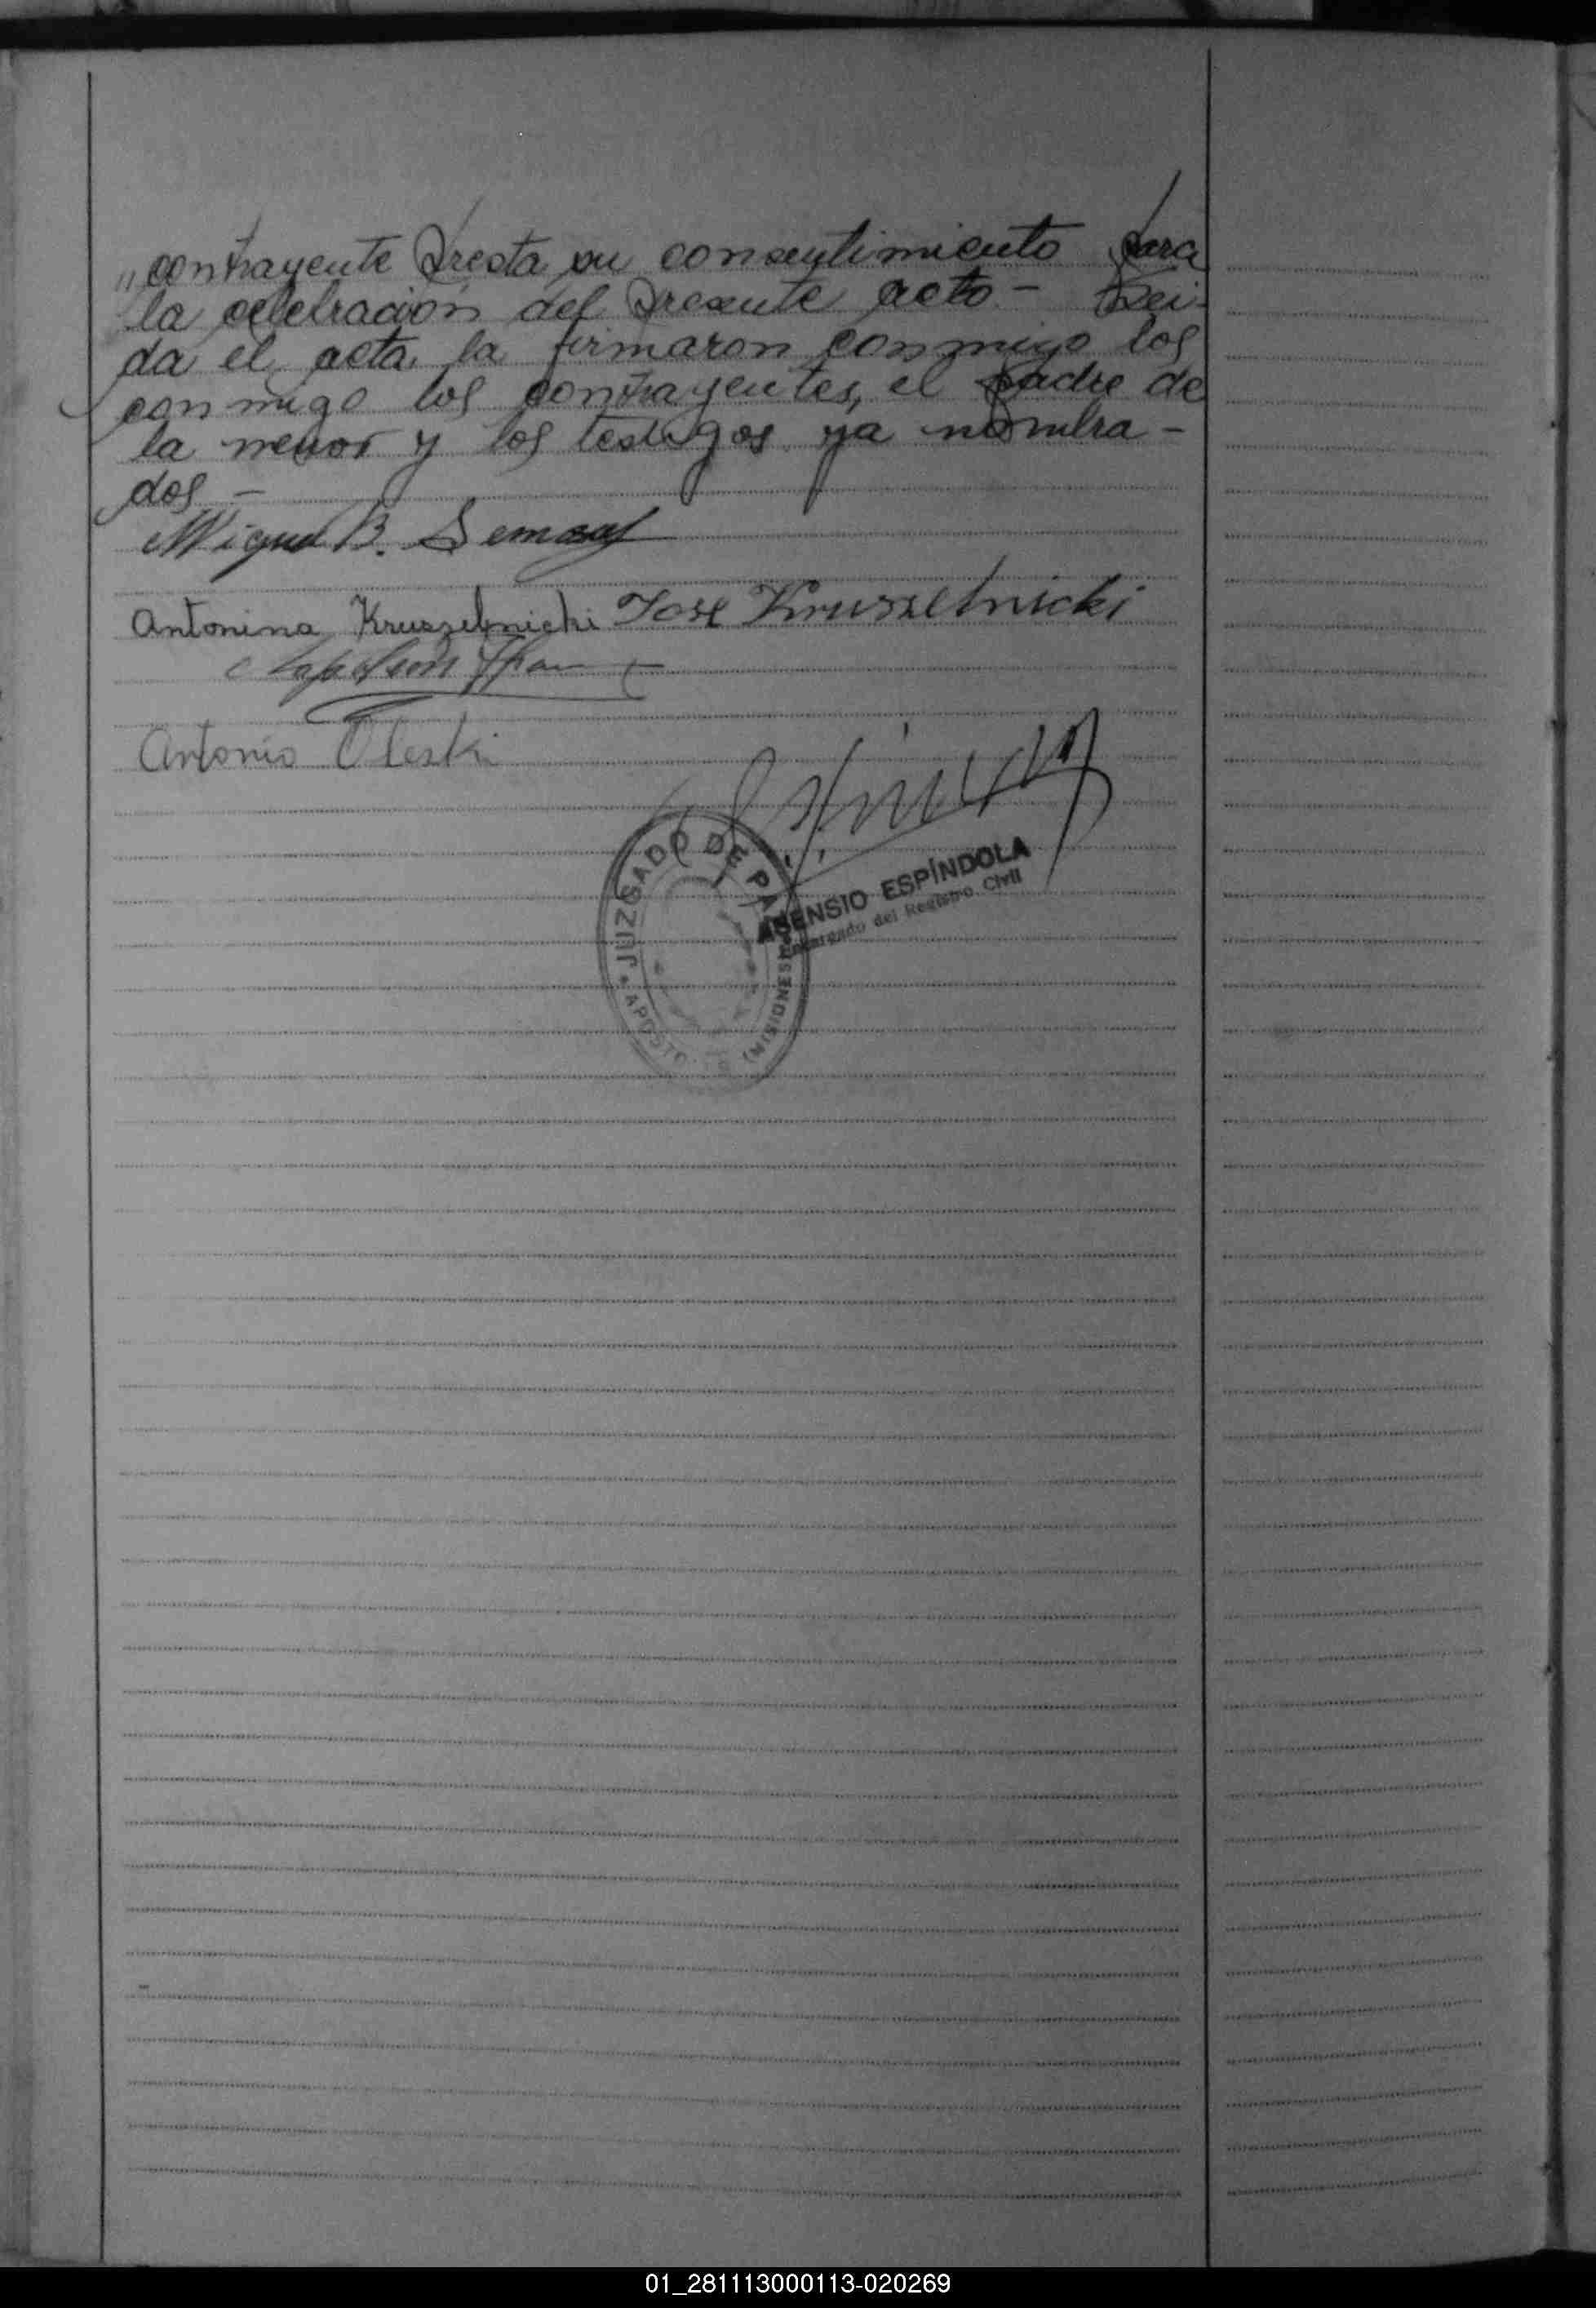 „contrayente presta su consentimiento para
la celebracion del presente acto - Lei-
da el acta, la firmaron conmigo los
conmigo los contrayentes, el padre de
la menor y los testigos ya nombra-
dos -
Miguel B.
Antonina Kruszelnicki Jose Kruszelnicki
Napoleon
Antonio Oleski
JUZGADO DE PAZ
ASENSIO ESPÍNDOLA
Encargado del Registro Civil
* APOSTOLES (MISIONES) *
01_281113000113-020269